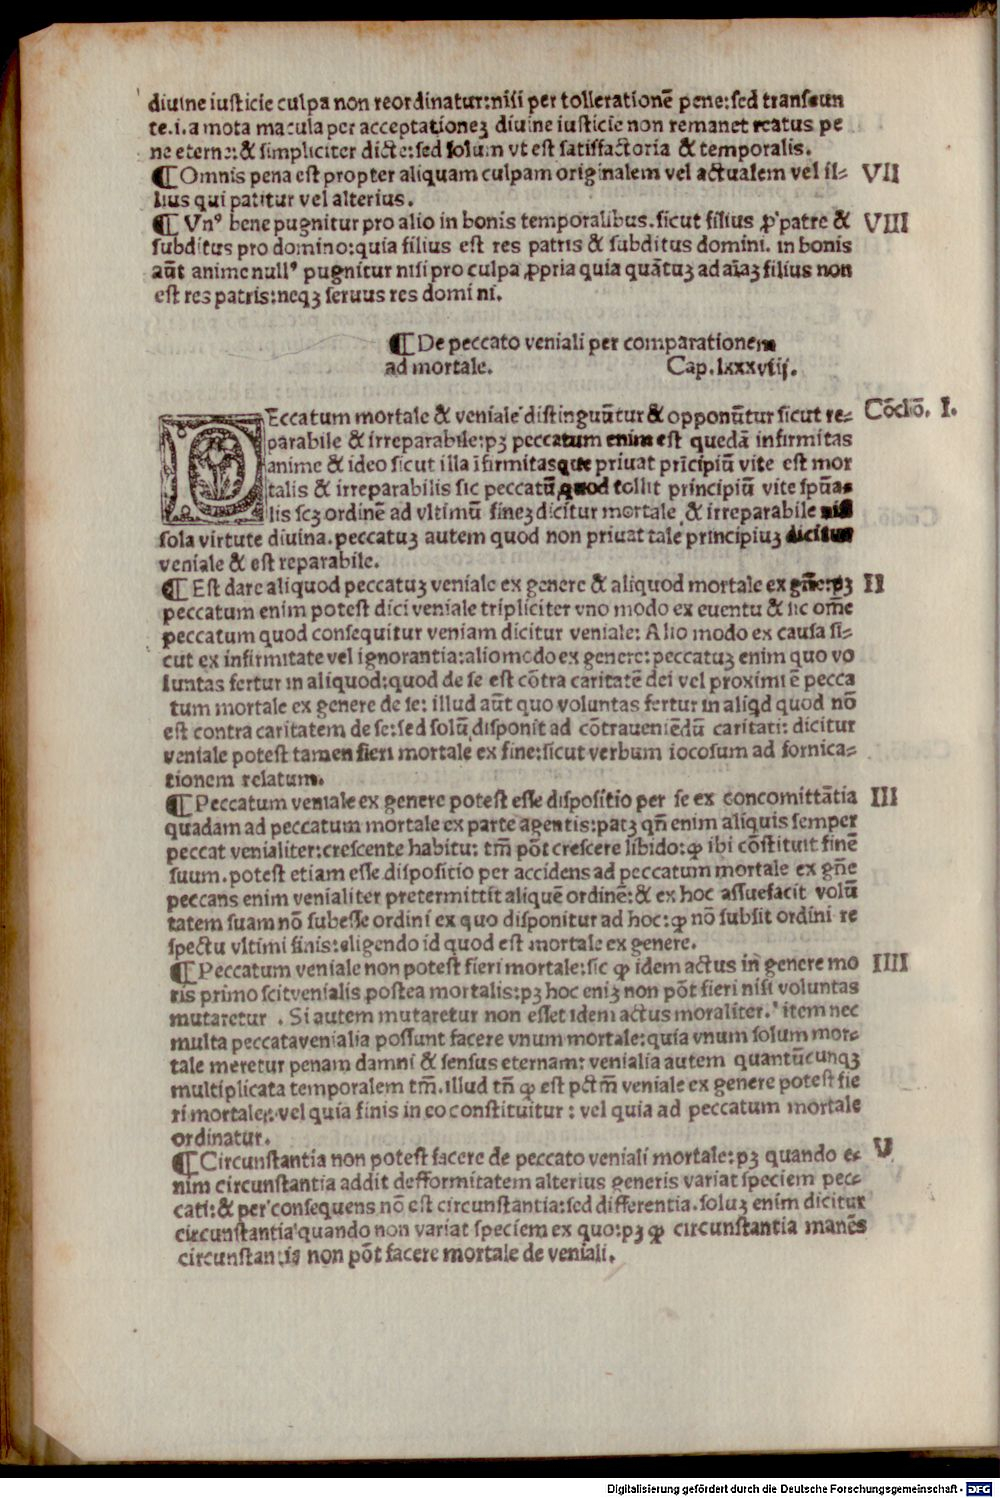 diuine iusticie culpa non reordinatur:nisi per tollerationē pene:sed transeun
te.i.a mota macula per acceptationeʒ diuine iusticie non remanet reatus pe
ne eterne:& simpliciter dicte:sed solum vt est satisfactoria & temporalis.
¶ Omnis pena est propter aliquam culpam originalem vel actualem vel il⸗ VII
lius qui patitur vel alterius.
¶ Vnꝰ bene pugnitur pro alio in bonis temporalibus.sicut filius ꝓ patre & VIII
subditus pro domino:quia filius est res patris & subditus domini. in bonis
aūt anime nullꝰ pugnitur nisi pro culpa ꝓpria quia quātuʒ ad aīaʒ filius non
est res patris:neqʒ seruus res domini.
¶ De peccato veniali per comparationem
ad mortale. Cap.lxxxviij.
PEccatum mortale & veniale distinguūtur & opponūtur sicut re⸗ Cōclō. I.
parabile & irreparabile:pʒ peccatum enim est quedā infirmitas
anime & ideo sicut illa īfirmitas que priuat prīcipiū vite est mor
talis & irreparabilis sic peccatū quod tollit principiū vite spūa⸗
lis scʒ ordinē ad vltimū fineʒ dicitur mortale & irreparabile nisi
sola virtute diuina.peccatuʒ autem quod non priuat tale principiuʒ dicitur
veniale & est reparabile.
¶ Est dare aliquod peccatuʒ veniale ex genere & aliquod mortale ex gn̄e:pʒ II
peccatum enim potest dici veniale tripliciter vno modo ex euentu & sic om̄e
peccatum quod consequitur veniam dicitur veniale: Alio modo ex causa si⸗
cut ex infirmitate vel ignorantia:alio modo ex genere:peccatuʒ enim quo vo
luntas fertur in aliquod:quod de se est cōtra caritatē dei vel proximi ē pecca
tum mortale ex genere de se: illud aūt quo voluntas fertur in aliqd quod nō
est contra caritatem de se:sed solū disponit ad cōtraueniēdū caritati: dicitur
veniale potest tamen fieri mortale ex fine:sicut verbum iocosum ad fornica⸗
tionem relatum.
¶ Peccatum veniale ex genere potest esse dispositio per se ex concomittātia III
quadam ad peccatum mortale ex parte agentis:patʒ qn̄ enim aliquis semper
peccat venialiter:crescente habitu: tm̄ pōt crescere libido:ꝙ ibi cōstituit finē
suum.potest etiam esse dispositio per accidens ad peccatum mortale ex gn̄e
peccans enim venialiter pretermittit aliquē ordinē:& ex hoc assuefacit volū
tatem suam nō subesse ordini ex quo disponitur ad hoc:ꝙ nō subsit ordini re
spectu vltimi finis:eligendo id quod est mortale ex genere.
¶ Peccatum veniale non potest fieri mortale:sic ꝙ idem actus in genere mo IIII
ris primo sit venialis postea mortalis:pʒ hoc eniʒ non pōt fieri nisi voluntas
mutaretur . Si autem mutaretur non esset idem actus moraliter. item nec
multa peccata venialia possunt facere vnum mortale:quia vnum solum mor⸗
tale meretur penam damni & sensus eternam: venialia autem quantūcunqʒ
multiplicata temporalem tm̄.illud tn̄ ꝙ est pctm̄ veniale ex genere potest fie
ri mortale:vel quia finis in eo constituitur : vel quia ad peccatum mortale
ordinatur.
¶ Circunstantia non potest facere de peccato veniali mortale:pʒ quando e⸗ V
nim circunstantia addit defformitatem alterius generis variat speciem pec⸗
cati:& per consequens nō est circunstantia:sed differentia.soluʒ enim dicitur
circunstantia quando non variat speciem ex quo:pʒ ꝙ circunstantia manēs
circunstantia non pōt facere mortale de veniali.
Digitalisierung gefördert durch die Deutsche Forschungsgemeinschaft - DFG